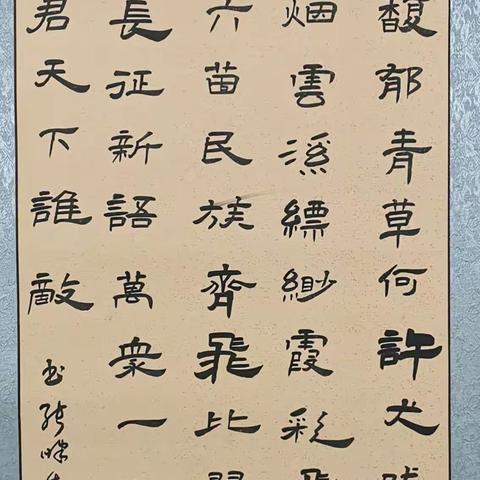 馥郁青草何許犬吠
烟雲溪縹緲霞彩飛
六苗民族齊飛比翼
長征新語萬衆一
君天下誰敵
书